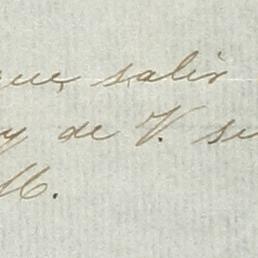 que salir
y de V. su
M.